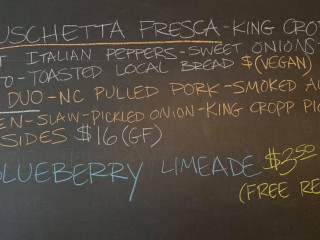 USCHETTA FRESCA-KING CRO
T ITALIAN PEPPERS-SWEET ONIONS-
TO-TOASTED LOCAL BREAD $(VEGAN)
DUO-NC PULLED PORK-SMOKED A
EN-SLAW-PICKLED ONION-KING CROPP PIC
SIDES $16 (GF)
BLUEBERRY LIMEADE $3.50
(FREE RE